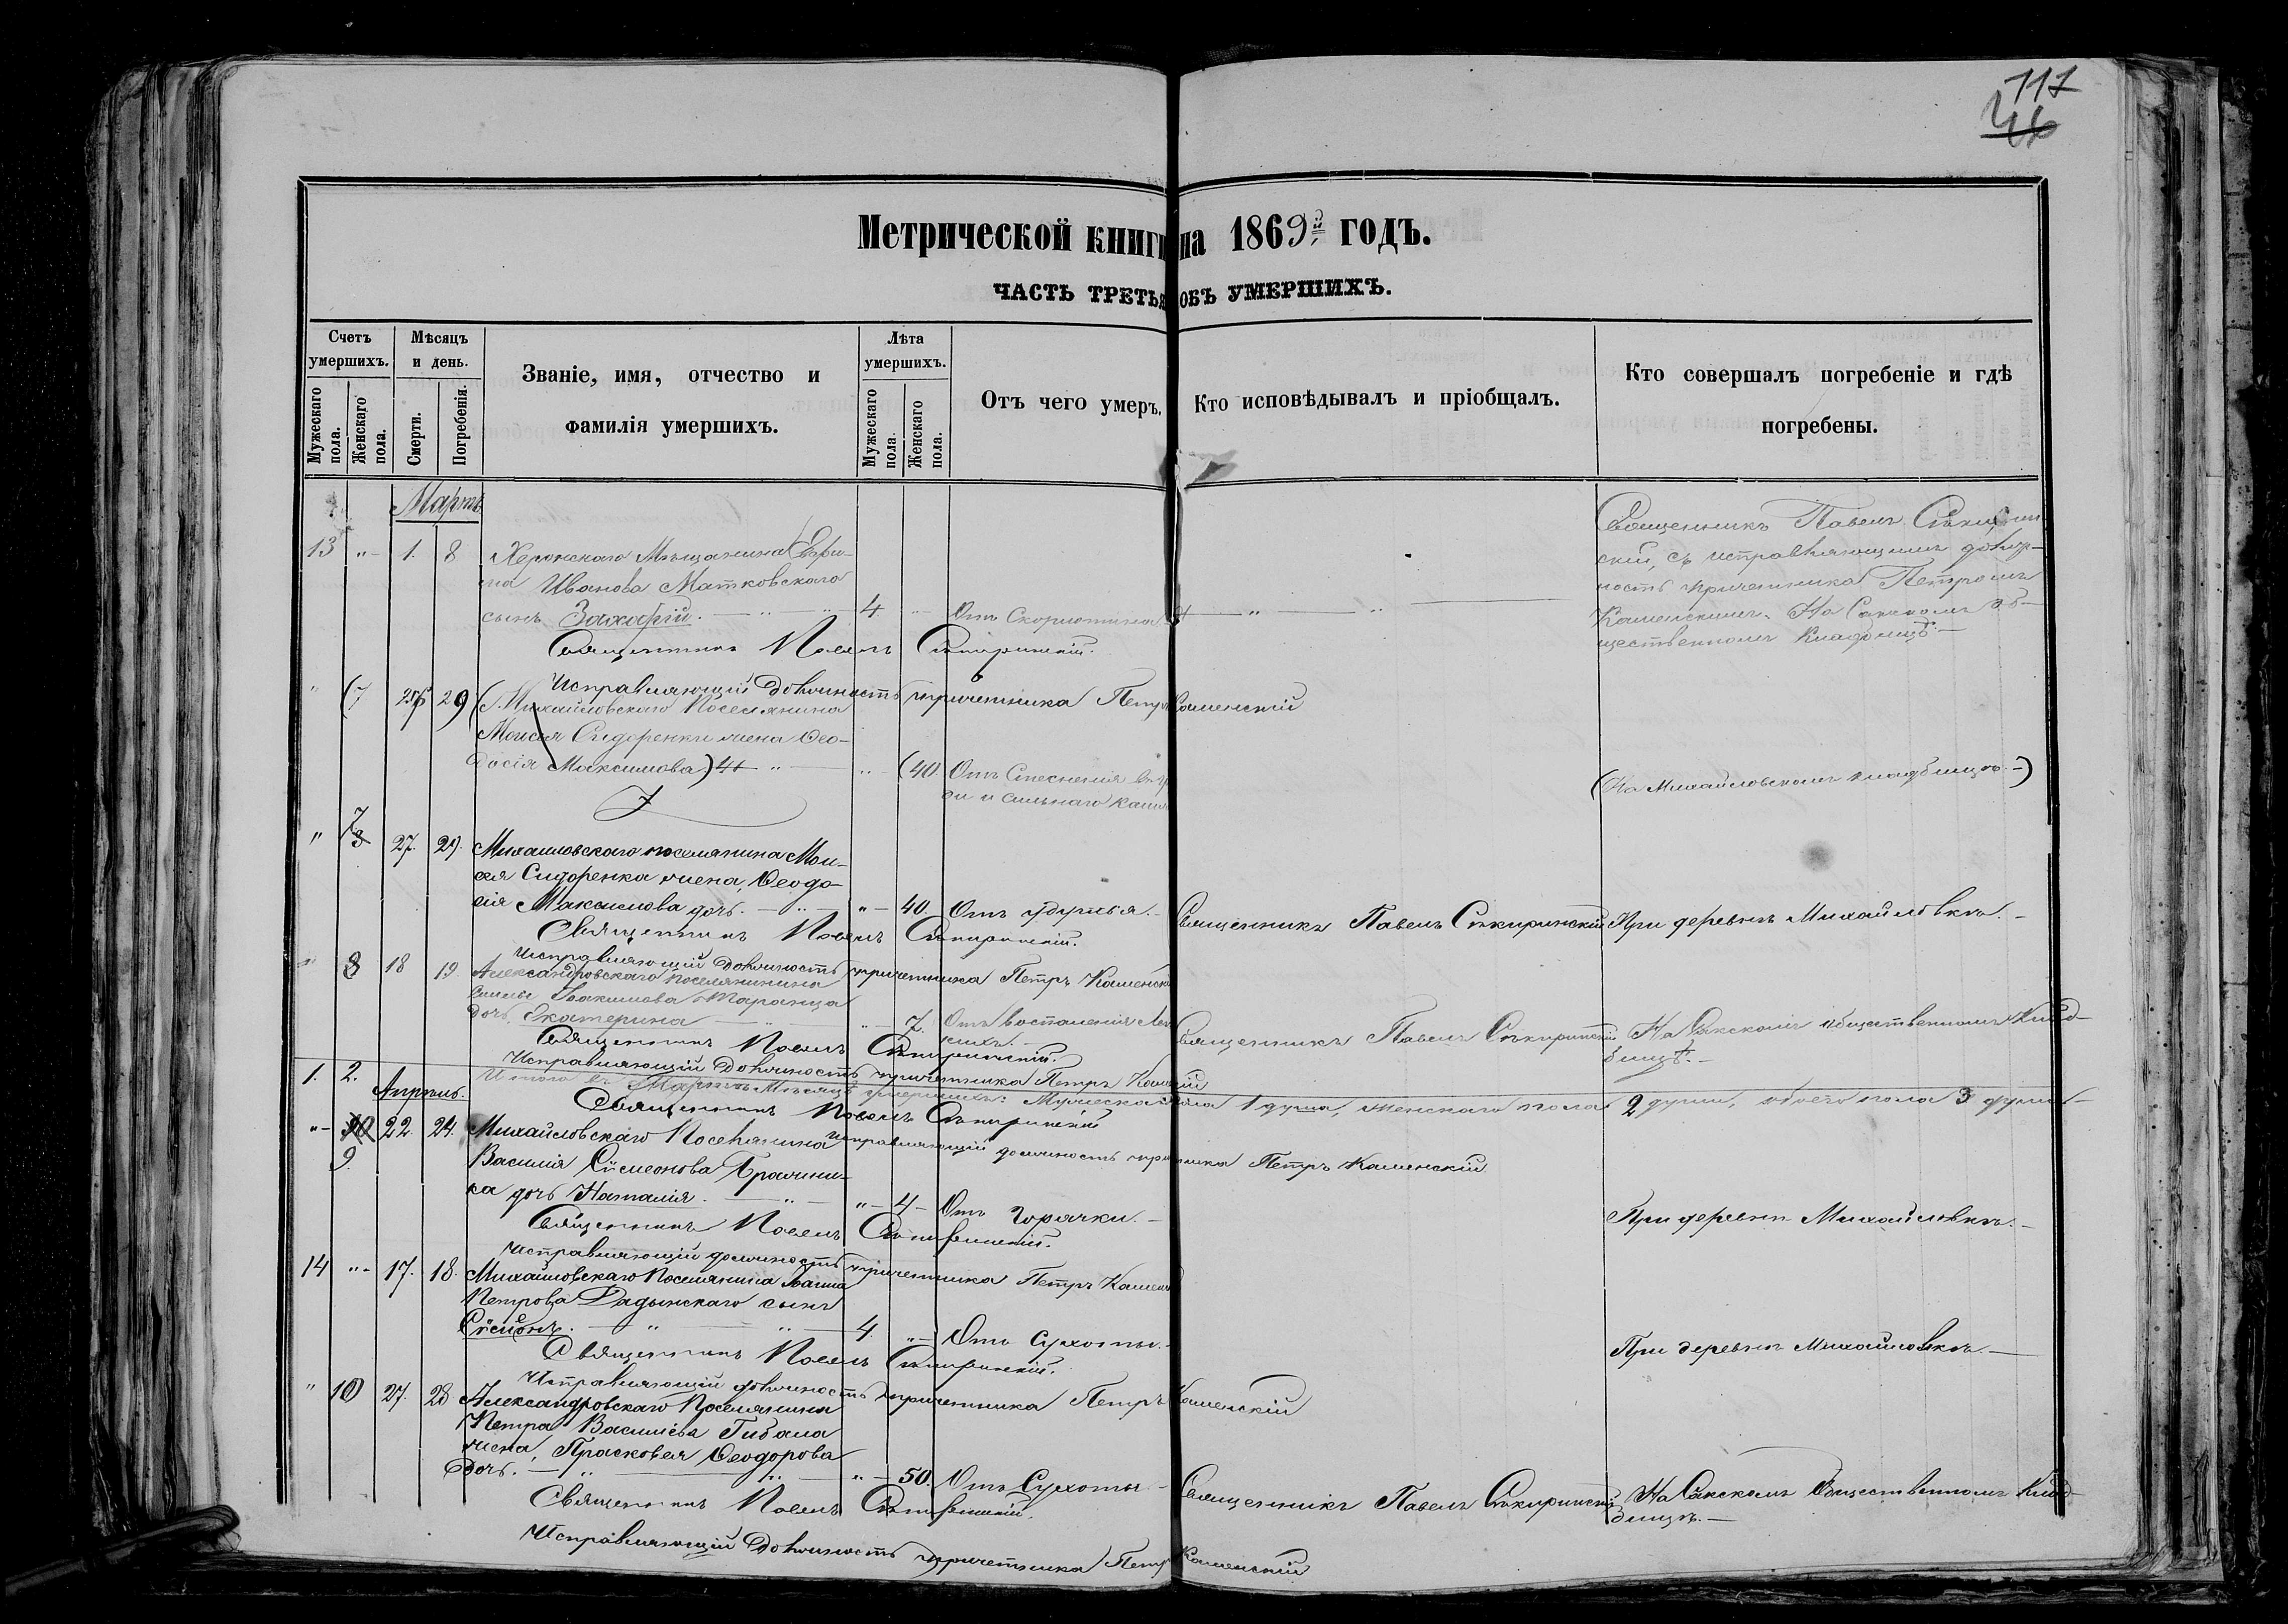 117
46
Метрической книги на 1869й годъ.
ЧАСТЬ ТРЕТЬЯ ОБЪ УМЕРШИХЪ.
Счетъ умершихъ.
Мужескаго пола.
Женскаго пола.
Мѣсяцъ и день.
Смерти.
Погребенія.
Званіе, имя, отчество и
фамилія умершихъ.
Лѣта умершихъ.
Мужескаго пола.
Женскаго пола.
Отъ чего умеръ.
Кто исповѣдывалъ и пріобщалъ.
Кто совершалъ погребеніе и гдѣ
погребены.
Мартъ
13 „ 1. 8 Херсонскаго Мѣщанина Ефи-
ма Иванова Матковскаго
сынъ Захарій. — „ — „ — 4 — Отъ Скорлотина — „ — „ —
Священникъ Павелъ Сѣкирин-
скій, съ исправляющимъ долж-
ность причетника Петромъ
Каменскимъ. На Сакскомъ об-
щественномъ кладбищѣ. —
Священникъ Павелъ Сѣкиринскій.
Исправляющій должность причетника Петръ Каменскій
„ (7 29) (Михайловскаго Поселянина
Моисея Сидоренки жена Ѳео-
досія Максимова) „ — „ — (40. Отъ Стесненія въ гру
ди и сильнаго кашля
(На Михайловскомъ кладбищѣ. —)
„ 7 27. 29. Михайловскаго поселянина Мои-
сея Сидоренка жена, Ѳеодо-
сія Максимова дочь. — „ — „ — 40. Отъ удушья. — Священникъ Павелъ Сѣкиринскій При деревнѣ Михайловкѣ. —
Священникъ Павелъ Сѣкиринскій.
Исправляющій должность причетника Петръ Каменскій
„ 8 18 19. Александровскаго поселянина
Іакимова Таранца
дочь Екатерина — „ — „ — 7. Отъ воспаленія Лег
кихъ. — Священникъ Павелъ Сѣкиринскій На Сакскомъ общественномъ клад-
бищѣ. —
Священникъ Павелъ Сѣкиринскій.
Исправляющій должность причетника Петръ Каменскій
1. 2. Итого въ Мартѣ Мѣсяцѣ умершихъ: Мужескаго пола 1 душа, женскаго пола 2 души, обоего пола 3 души —
Апрѣль.
Священникъ Павелъ Сѣкиринскій
Исправляющій должность причетника Петръ Каменскій
„ — 9. 22. 24. Михайловскаго Поселянина
Василія Сѵмеонова Бражни-
ка дочь Наталія. — „ — „ — 4 — Отъ Горячки. — При деревнѣ Михайловкѣ. —
Священникъ Павелъ Сѣкиринскій.
Исправляющій должность причетника Петръ Каменскій
14 „ — 17. 18. Михайловскаго Поселянина Іоанна
Петрова Дадынскаго сынъ
Сѵмеонъ. — „ — „ — 4. „ — Отъ Сухоты. — При деревнѣ Михайловкѣ. —
Священникъ Павелъ Сѣкиринскій.
Исправляющій должность причетника Петръ Каменскій
„ 10 27. 28 Александровскаго Поселянина
Петра Васильева Гибала
жена, Прасковея Ѳеодорова
дочь. — „ — „ — 50. Отъ Сухоты — Священникъ Павелъ Сѣкиринскій На Сакскомъ Общественномъ Клад-
бищѣ. —
Священникъ Павелъ Сѣкиринскій.
Исправляющій должность причетника Петръ Каменскій